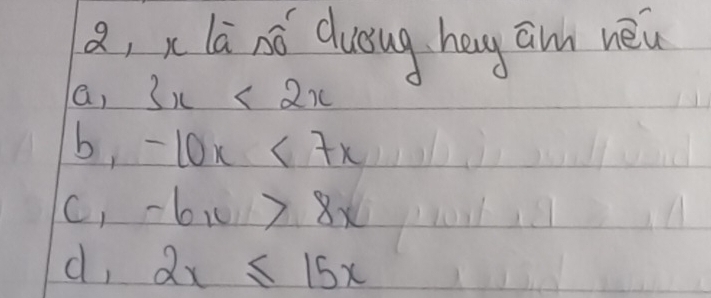 2, x là số dương hay âm nếu
a, 3x < 2x
b, -10x < 7x
c, -6x > 8x
d, 2x ≤ 15x